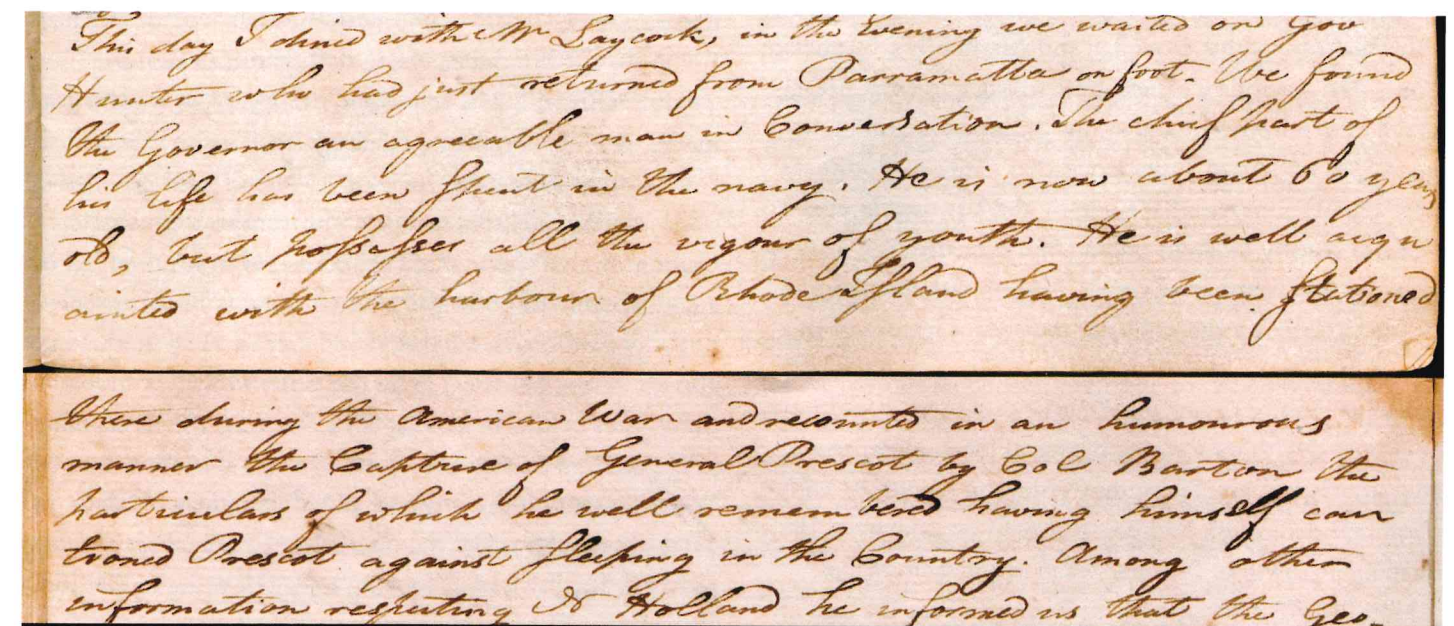 This day I dined with Mr Laycock, in the Evening we waited on Gov
Hunter who had just returned from Parramatta on foot. We found
the Governor an agreeable man in Conversation. The chief part of
his life has been spent in the navy. He is now about 60 years
old, but possesses all the vigour of youth. He is well acqu
ainted with the harbour of Rhode Island having been stationed
there during the American War and recounted in an humourous
manner the Capture of General Prescot by Col Barton the
particulars of which he well remembered having himself cau
tioned Prescot against sleeping in the Country. Among other
information respecting N Holland he informed us that the Geo-